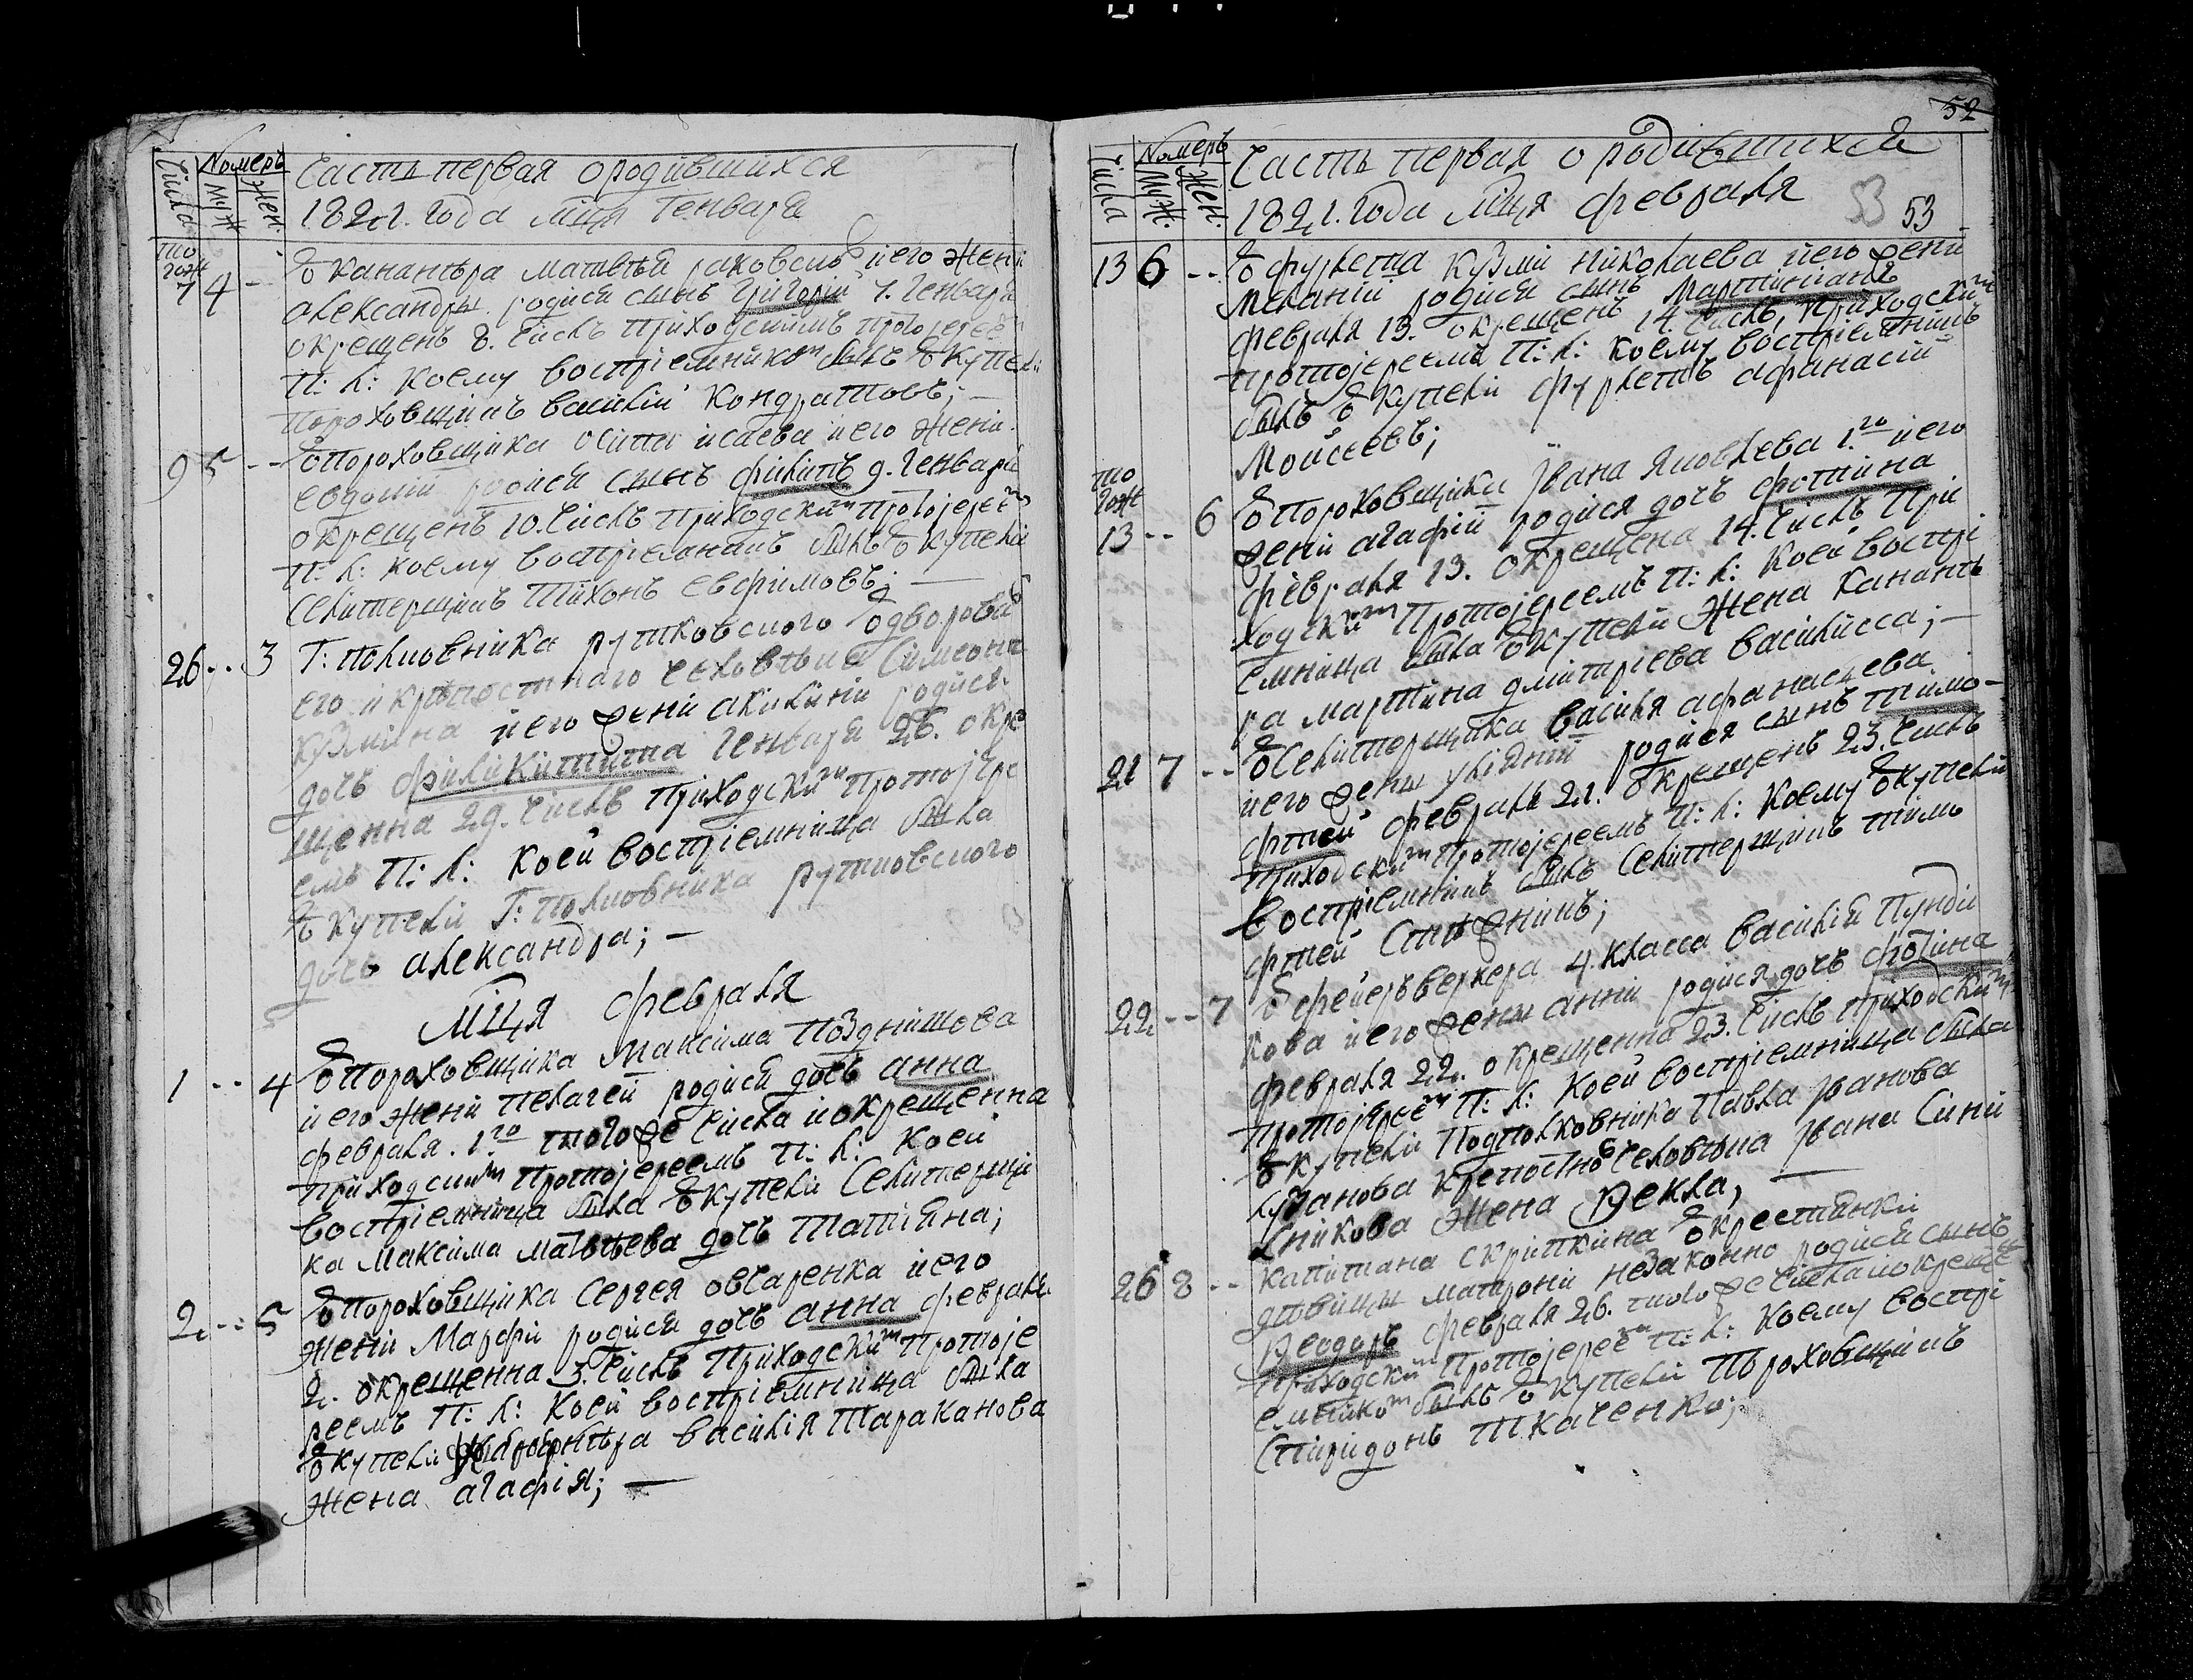 Числа
Номеръ
Муж
Жен:
Часть первая ородившихся
1821. года мця Генваря
то
гож
7 4 -
У канонѣра матвѣя раковског иего жени
александры родися сынъ Григорій 7. Генваря
окрещенъ 8. числъ приходскимъ протоіерее
П: Л: коему воспріемником былъ У купели
пороховщикъ василій Кондратовъ; —
9 5 --
Упороховщика осипа исаева иего жени
евдокіи родися сынъ филипъ 9. Генваря
окрещенъ 10. числъ приходским протоіерее
П: Л: коему воспріемникъ былъ Укупели
Селитерщикъ Тихонъ Евфимовъ; —
26 -- 3
Г: полковника рутковского Удворова
его икрѣпостнаго человѣка Симеона
кузмина иего жени акилини родися
дочь филикитата Генваря 26. окре
щенна 29. числъ приходским протоіере
емъ П: Л: коей воспріемница была
Укупели Г: полковника рутковского
дочь александра; —
Мця февраля
1 -- 4
Упороховщика максима позднишова
иего жени пелагеи родися дочь анна
февраля. 1го того же числа иокрещенна
приходским протоіереемъ П: Л: коей
воспріемница была Укупели Селитерщи
ка Максима матвѣева дочь татіяна;
2 -- 5
Упороховщика Сергея овчаренка иего
жени Марфи родися дочь анна февраля
2. окрещенна 3. числъ приходским протоіе
реемъ П: Л: коей воспріемница была
Укупели василія Тараканова
жена агафія; —
52
Числа
Номеръ
Муж:
Жен:
Часть первая о родившихся
1821. года мця февраля
53 53
13 6 --
У фурлета кузми николаева иего жени
меланіи родися сынъ мартиніанъ
февраля 13. окрещенъ 14. числъ, приходским
протоіереемъ П: Л: коему воспріемникъ
былъ У купели фурлетъ афанасій
Моисеевъ;
то
гож
13 -- 6
Упороховщика Ивана яковлева 1го иего
жени агафіи родися дочь фотина
февраля 13. окрещена 14. числъ при
ходским протоіереемъ П: Л: коей воспрі
емница была Укупели жена канонѣ
ра мартина дмитріева василисса; —
21 7 --
Уселитерщика василя афанасцева
иего жены уліяніи родися сынъ тимо-
фтей февраля 21. окрещенъ 23. числъ
приходским протоіереемъ П: Л: коему Укупели
воспріемникъ былъ Селитерщикъ тимо
фтей Слѣжникъ;
22 -- 7
У фейерверкера 4. класса василія Пунди
кова иего жены анни родися дочь фотина
февраля 22. окрещенна 23. числъ приходским
протоіерее П: Л: коей воспріемница была
Укупели Подполковника Павла Іванова
Крепостно человѣка Івана Сини
жена Фекла, —
26 8 --
Капитана скрипкина Укрестянки
дѣвицы матрони незаконно родися сынъ
Феодоръ февраля 26. того же числа иокреще
приходским протоіерее П: Л: коему воспрі
емником былъ Укупели Пороховщикъ
Спиридонъ Ткаченко;